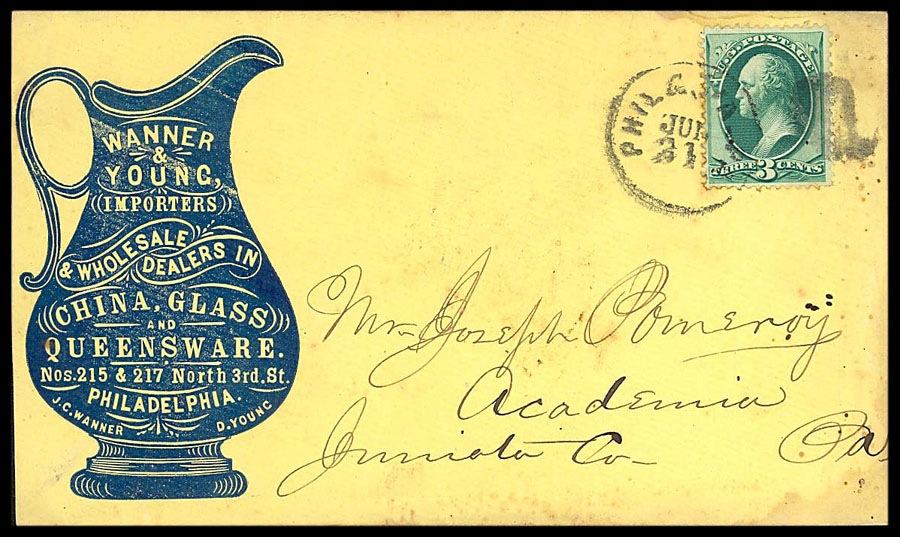 WANNER
&
YOUNG,
IMPORTERS
& WHOLESALE
DEALERS IN
CHINA, GLASS
AND
QUEENSWARE.
Nos. 215 & 217 North 3rd. St.
PHILADELPHIA.
J.C. WANNER D. YOUNG
PHILA
JUN
21
U.S. POSTAGE
THREE 3 CENTS
Mr Joseph Pomeroy
Academia
Juniata Co Pa